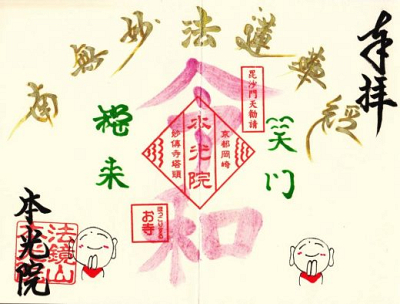 奉拝
南無妙法蓮華經
令和
毘沙門天勧請
笑門
福来
京都岡崎
本光院
妙傳寺塔頭
お寺
法鏡山
本光院